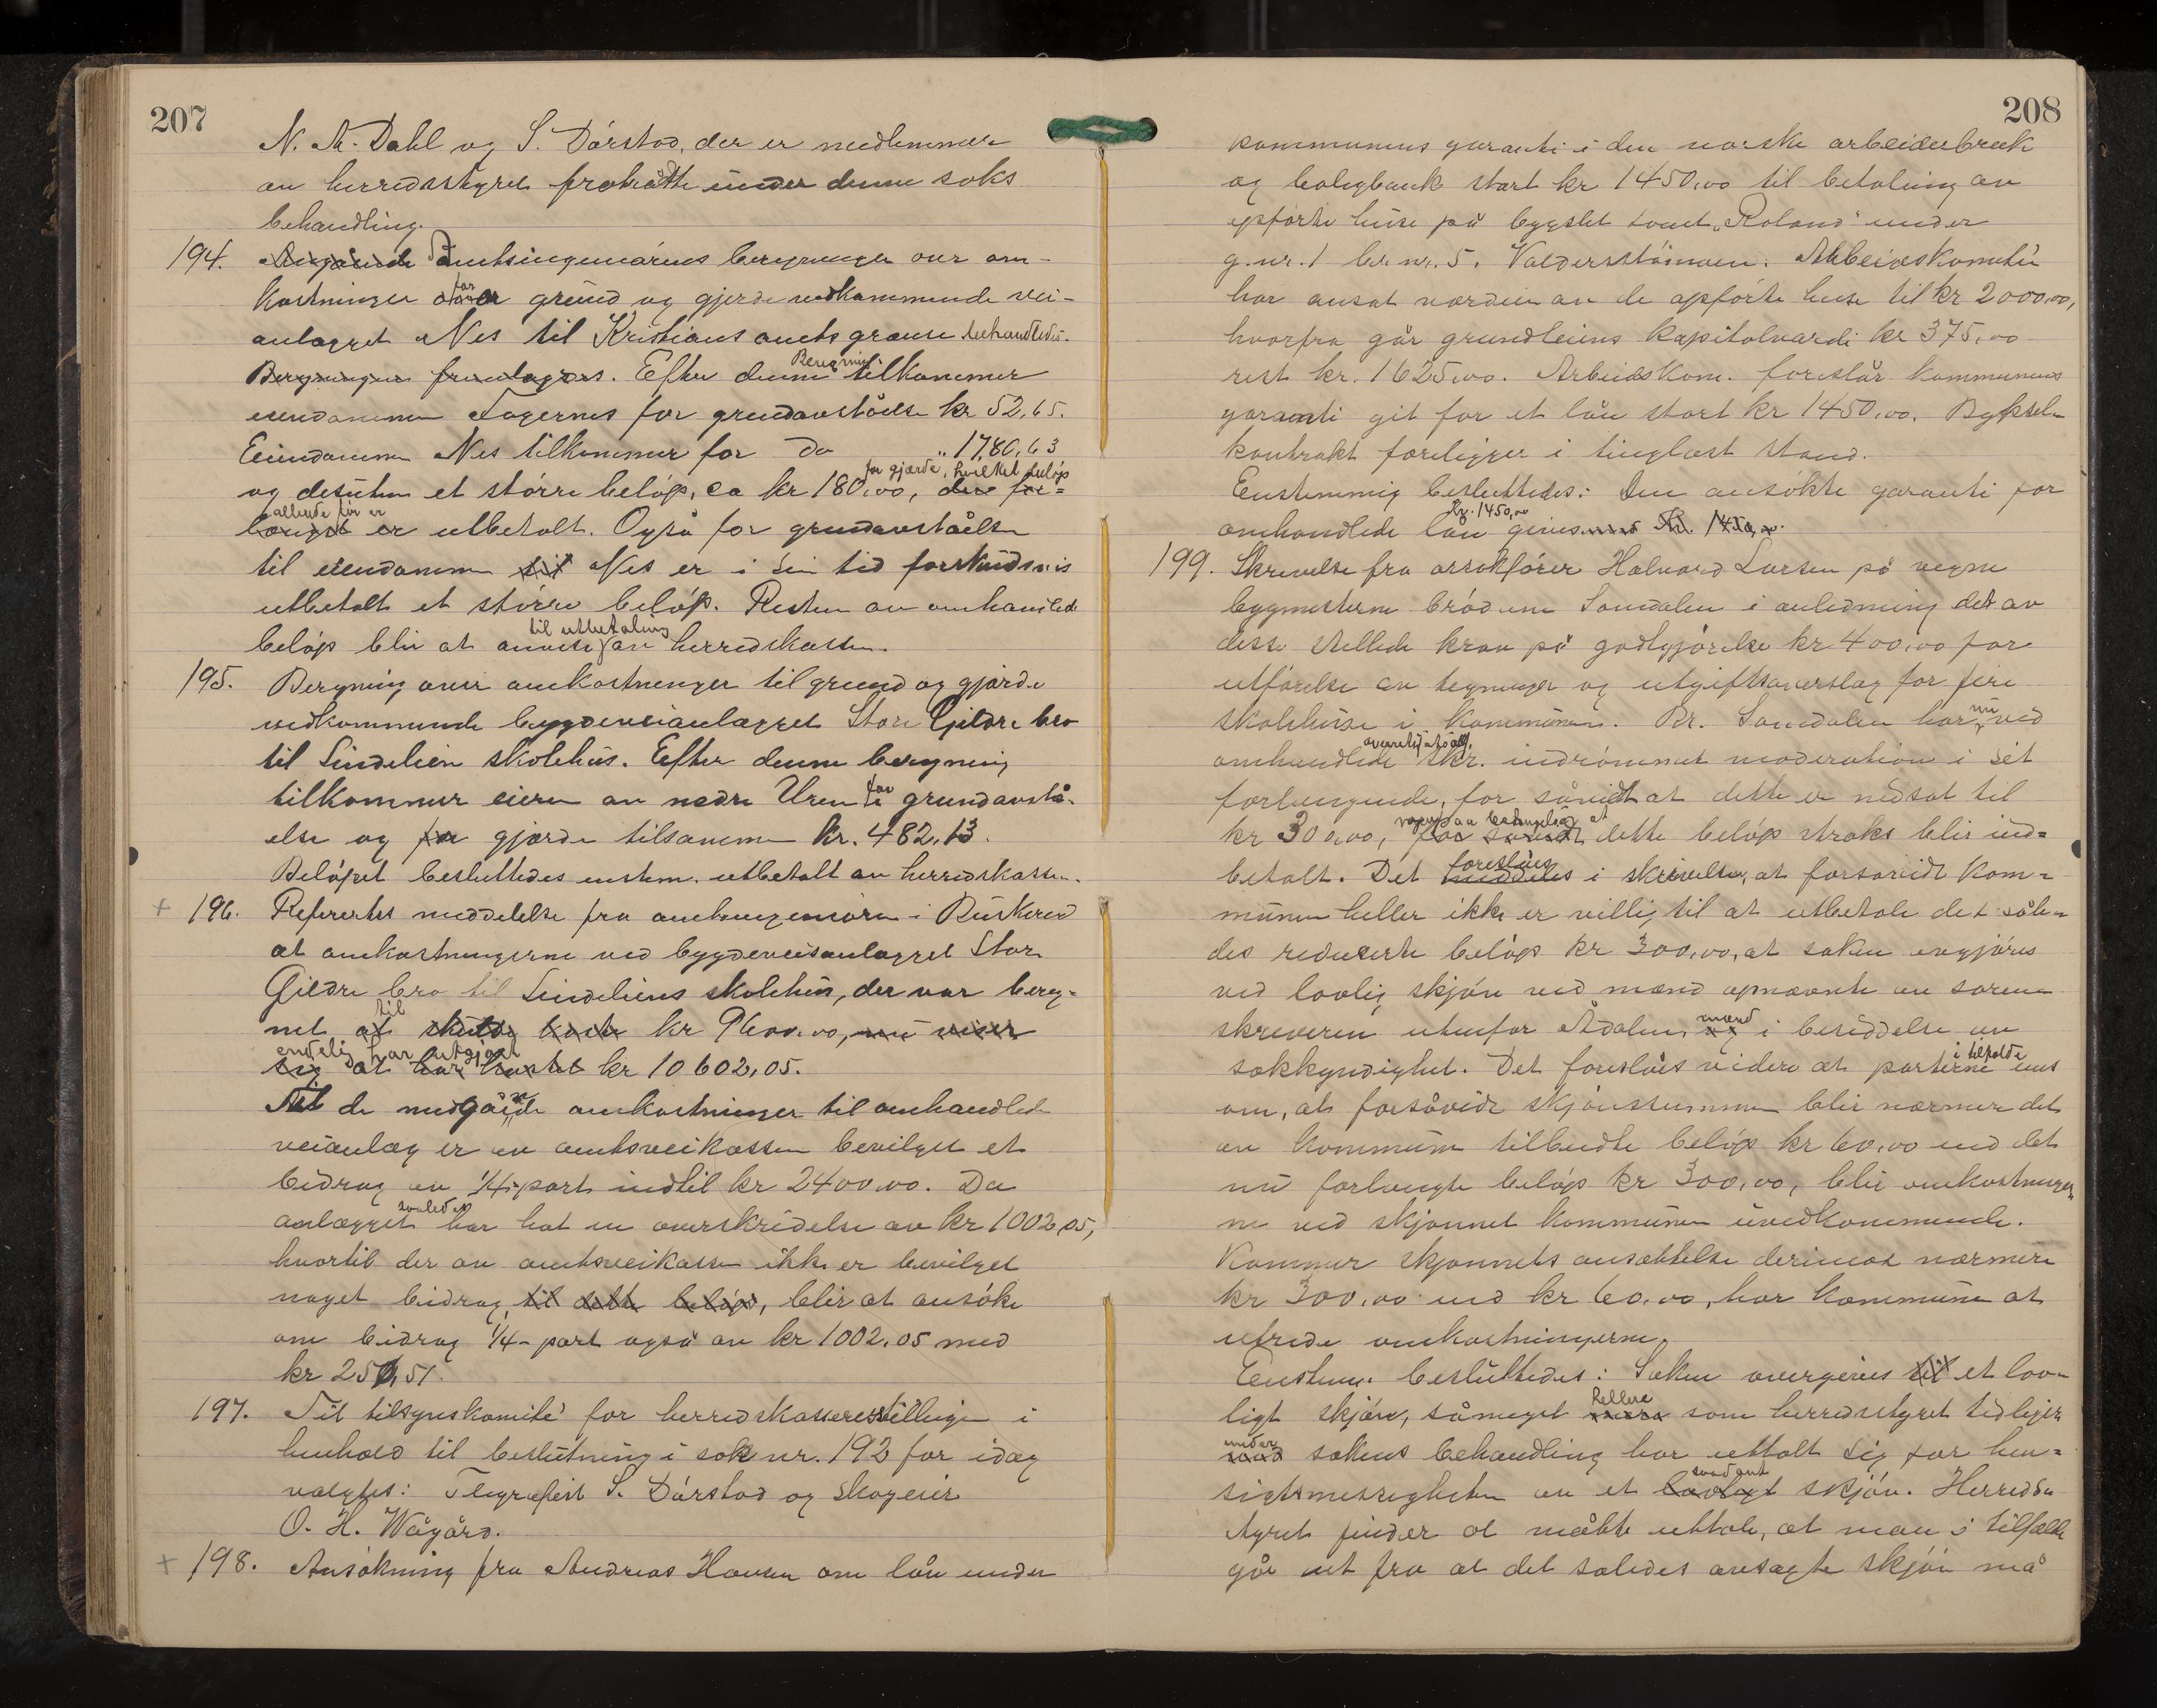 207
N. A. Dahl og S. Dårstad, der er medlemmer
av herredsstyret fratrådte under denne saks
behandling.
194. Angående Amtsingeniørens beregninger over om-
kostninger over for grund og gjerde vedkommende vei-
anlægget Nes til Kristians amts grænse behandledes.
Beregningen fremlagdes. Efter denne Beregning tilkommer
eiendommen Fagernes for grundavståelse kr 52,65.
Eiendommen Nes tilkommer for do „ 1780,63
og desuten et større beløp, ca kr 180,00, for gjærde, hvilket beløp den for-
længst allerede før er er utbetalt. Også for grundavståelse
til eiendommen til Nes er i sin tid forskudsvis
utbetalt et større beløp. Resten av omhandlede
beløp blir at anvise til utbetaling av herredskassen.
195. Beregning over omkostninger til grund og gjærde
vedkommende bygdeveianlægget Store Gjeldre bro
til Lindelien skolehus. Efter denne beregning
tilkommer eieren av nedre Uren for grundavstå-
else og for gjærde tilsammen kr. 482,13.
Beløpet besluttedes enstem. utbetalt av herredskassen.
+ 196. Refertes meddelelse fra amtsingeniøren i Buskerud
at omkostningerne ved bygdeveisanlægget Store
Gjeldre bro til Lindeliens skolehus, der var bereg-
net at til skulde koste kr 9600,00, nu viser
sig at endelig har utgjort har kostet kr 10602,05.
Til de medgåede omkostninger til omhandlede
veianlæg er av amtsveikassen bevilget et
bidrag av 1/4-part indtil kr 2400,00. Da
anlægget således har hat en overskridelse av kr 1002,05,
hvortil der av amtsveikassen ikke er bevilget
noget bidrag, til dette beløp, blir at ansøke
om bidrag 1/4-part også av kr 1002,05 med
kr 250,51.
197. Til tilsynskomité for herredskasserestillingen i
henhold til beslutning i sak nr. 192 for idag
valgtes: Telegrafist S. Dårstad og skogeier
O. H. Wågård.
+ 198. Ansøkning fra Andreas Hansen om lån under
208
kommunens garanti i den norske arbeiderbruk
og boligbank stort kr 1450,00 til betaling av
opførte huse på bygslet tomt „Roland" under
g.nr. 1 br. nr. 5. Valdersstømoen. Arbeidskomitéen
har ansat værdien av de opførte huse til kr 2000,00,
hvorfra går grundleiens kapitalværdi kr 375,00
rest kr. 1625,00. Arbeidskom. foreslår kommunens
garanti git for et lån stort kr 1450,00. Bygsel-
kontrakt foreligger i tinglæst stand.
Enstemmig besluttedes: Den ansøkte garanti for
omhandlede lån kr. 1450,00 gives med kr. 1450,00.
199. Skrivelse fra orsakfører Halvard Larsen på vegne
bygmesterne brødrene Sørndalen i anledning det av
disse stillede krav på godtgjørelse kr 400,00 for
utførelse av tegninger og utgiftsoverslag for fire
skolehuse i kommunen. Br. Sørndalen har nu ved
omhandlede skr. indrømmet moderation i sit
forlangende, for såvidt at dette er nedsat til
kr 300,00, for såvidt dette beløp straks blir ind-
betalt. Det meddeles foreslåes i skrivelsen, at forsåvidt kom-
munen heller ikke er villig til at utbetale det såle-
des reducerte beløp kr 300,00, at saken avgjøres
ved lovlig skjøn ved mænd opnævnte av soren-
skriveren utenfor Ådalen, og mænd i besiddelse av
sakkyndighet. Det foreslåes videre at parterne i tilfælde enes
om, at forsåvidt skjønssummen blir nærmere det
av kommunen tilbudte beløp kr 60,00 end det
nu forlangte beløp kr 300,00, blir omkostninger-
ne ved skjønnet kommunen uvedkommende.
Kommer skjønnets ansættelse derimot nærmere
kr 300,00 end kr 60,00, har kommunen at
utrede omkostningerne.
Enstem. besluttedes: Saken overgives til et lov-
ligt skjøn, såmeget mere hellere som herredsstyret tidligere
ved under sakens behandling har uttalt sig for hen-
sigtsmessigheten av et lovligt saadant skjøn. Herreds-
styret finder at måtte uttale, at man i tilfælde
går ut fra at det således ansagte skjøn må